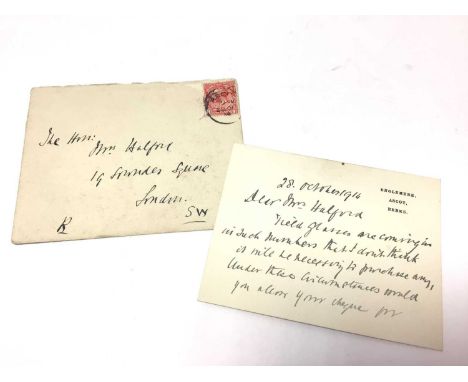 The Hon:
Mrs Halford
19 Lowndes Square
London.
SW
R
ENGLEMERE,
ASCOT,
BERKS.
28. October 1914
Dear Mrs Halford
Field glasses are coming in
in such numbers that I don't think
it will be necessary to purchase any,
Under these circumstances would
you allow your cheque for